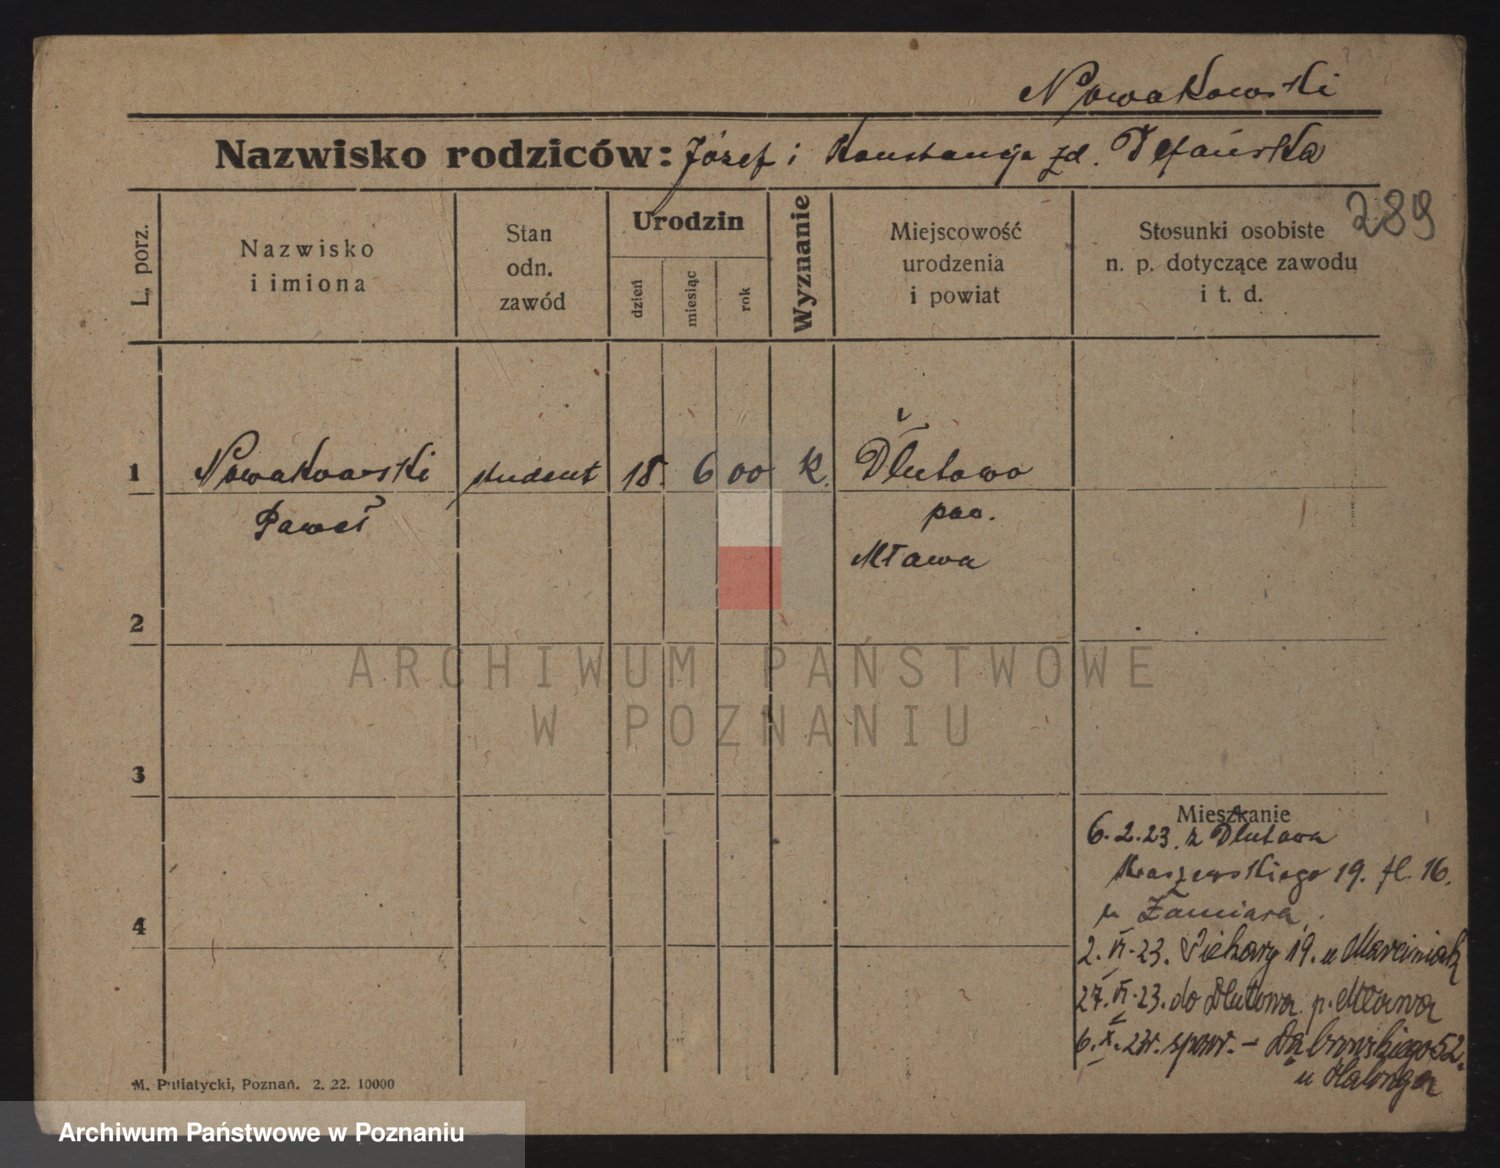 Nowakowski
Nazwisko rodziców: Józef i Konstancja zd.
289
L. porz.
Nazwisko
i imiona
Stan
odn.
zawód
Urodzin
dzień
miesiąc
rok
Wyznanie
Miejscowość
urodzenia
i powiat
Stosunki osobiste
n. p. dotyczące zawodu
i t. d.
1
Nowakowski
student
18.
6
00
k.
Dłutowo
Paweł
pow.
Mława
2
ARCHIWUM PAŃSTWOWE
W POZNANIU
3
Mieszkanie
6.2.23. z Dłutowa
Kraszewskiego 19. fl. 16.
u
4
2.VI.23. Piekary 19. u Marciniak
27.VI.23. do Dłutowa p. Mława
6.X.23r. spow. – Dąbrowskiego 52.
u
M. Putiatycki, Poznań. 2. 22. 10000
Archiwum Państwowe w Poznaniu